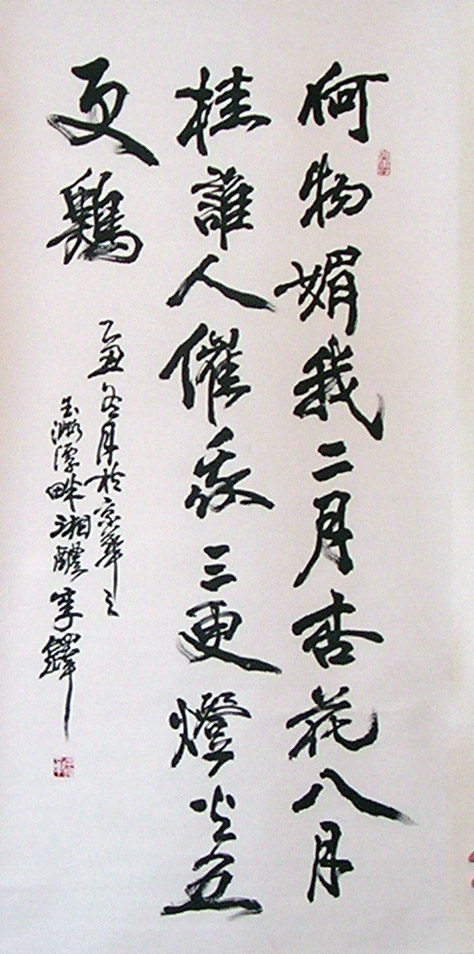 何物媚我二月杏花八月
桂誰人催我三更燈火五
更鷄
乙丑冬月於京華之
玉淵潭畔湘醴李鐸